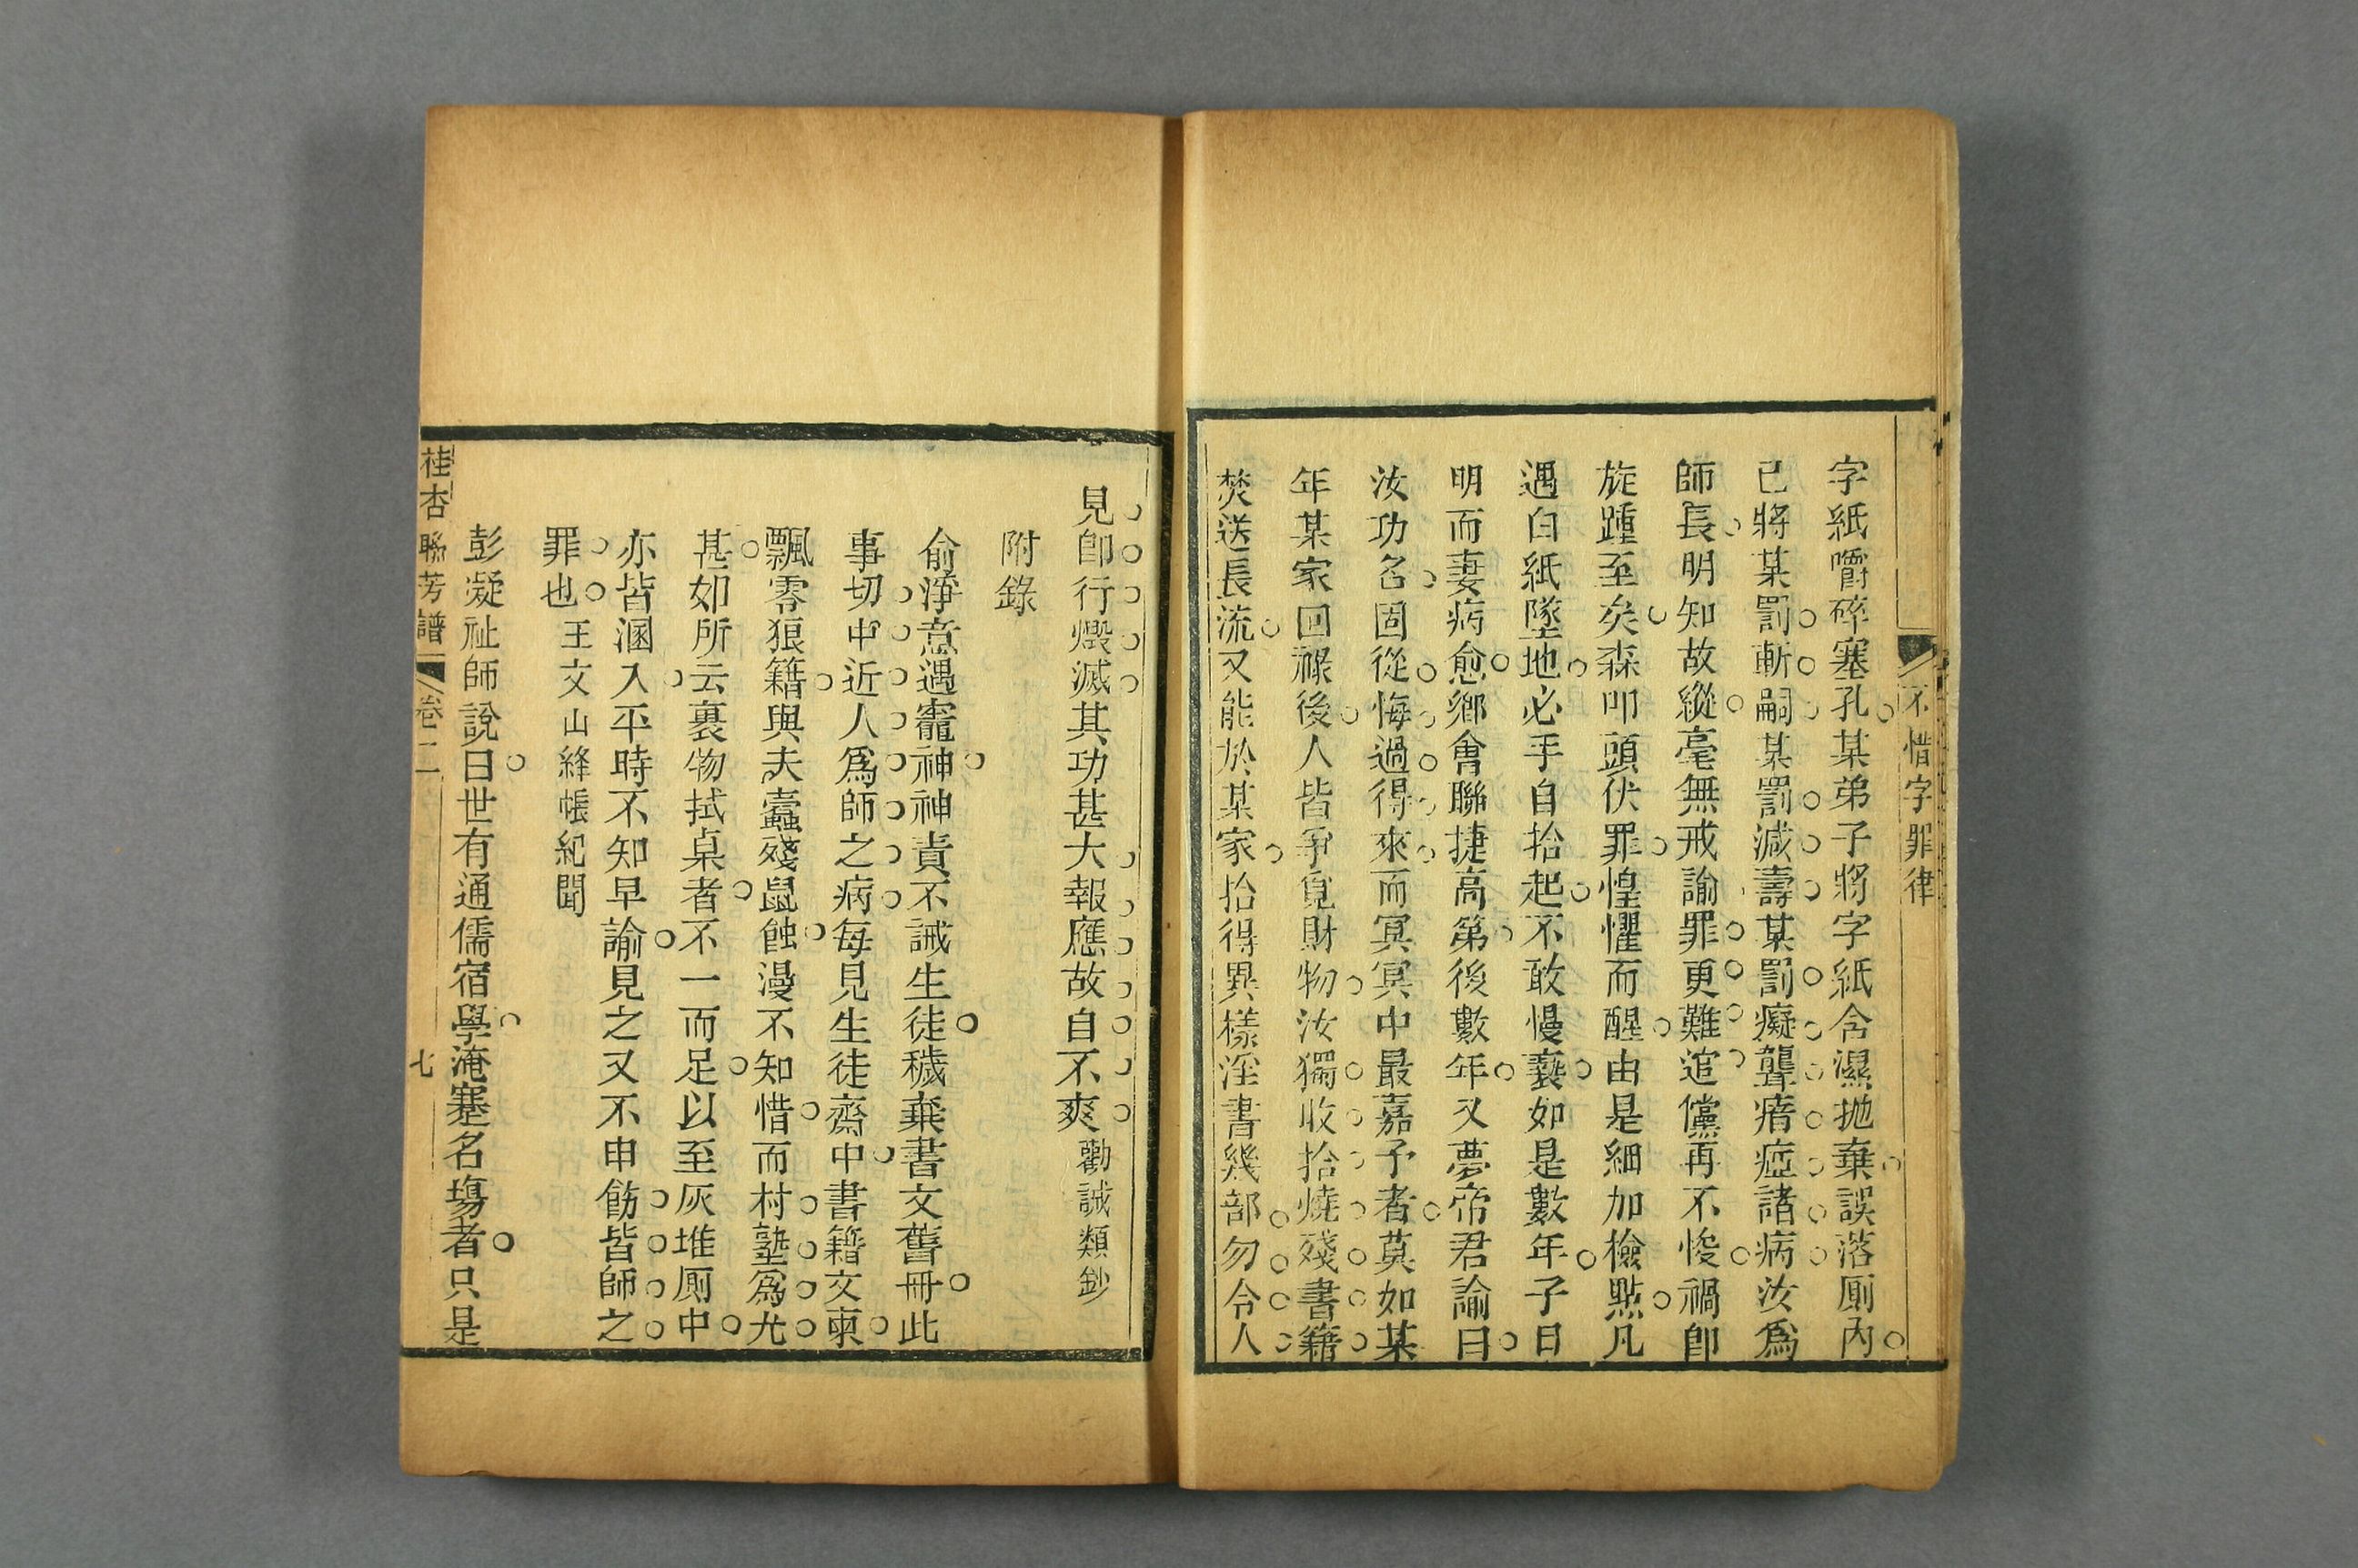 不惜字罪律
字紙嚼碎塞孔某弟子將字紙含濕拋棄誤落厠內
已將某罰斬嗣某罰減壽某罰癡聾瘖瘂諸病汝爲
師長明知故縱毫無戒諭罪更難逭儻再不悛禍卽
旋踵至矣森叩頭伏罪惶懼而醒由是細加檢點凡
遇白紙墜地必手自拾起不敢慢褻如是數年子日
明而妻病愈鄉會聯捷高第後數年又夢帝君諭曰
汝功名固從悔過得來而冥冥中最嘉予者莫如某
年某家回祿後人皆爭覓財物汝獨收拾燒殘書籍
焚送長流又能於某家拾得異樣淫書幾部勿令人
見卽行燬滅其功甚大報應故自不爽勸誡類鈔
附錄
俞淨意遇竈神神責不誡生徒穢棄書文舊冊此
事切中近人爲師之病每見生徒齋中書籍文柬
飄零狼籍與夫蠹殘鼠蝕漫不知惜而村塾爲尤
甚如所云裹物拭桌者不一而足以至灰堆厠中
亦皆溷入平時不知早諭見之又不申飭皆師之
罪也王文山絳帳紀聞
彭凝祉師說曰世有通儒宿學淹蹇名塲者只是
桂杏聯芳譜 卷二 七